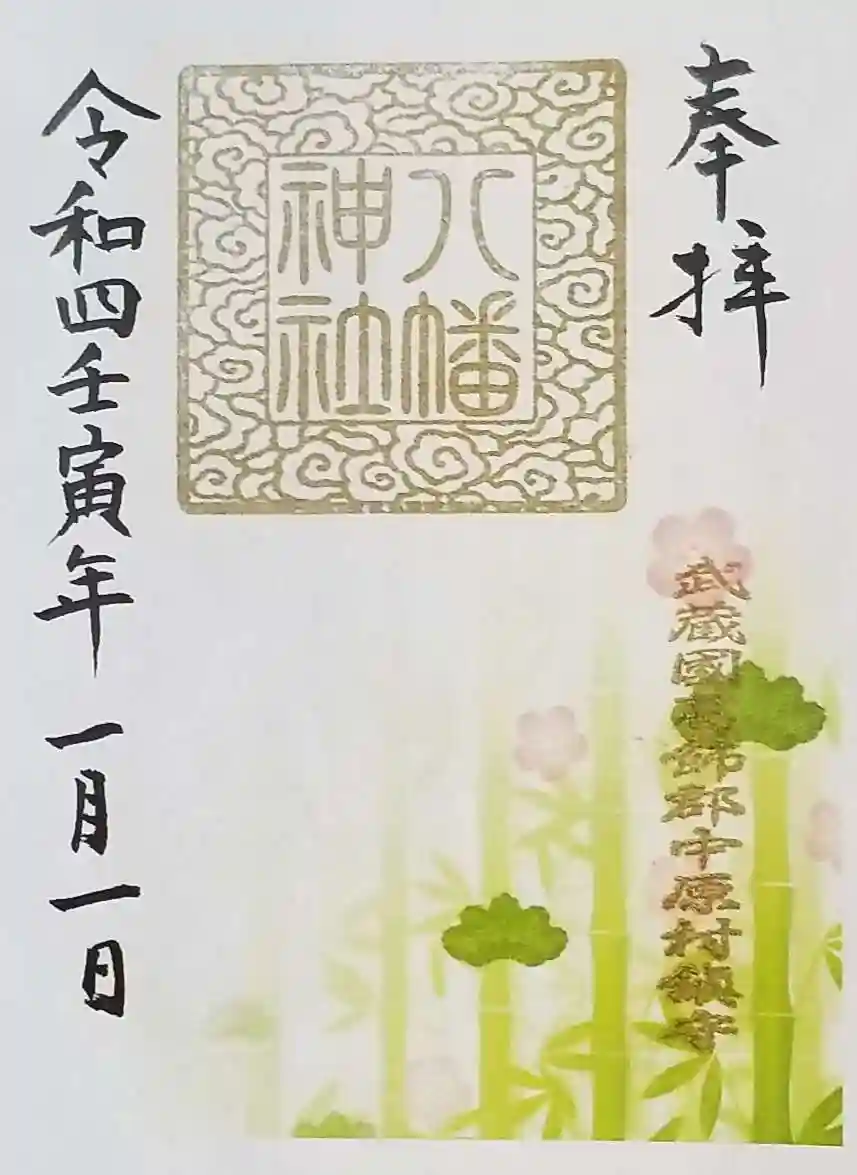 奉拝
武蔵國葛飾郡中原村鎮守
八幡
神社
令和四壬寅年 一月一日